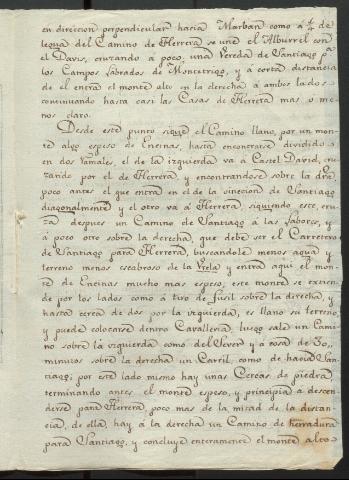 en direccion perpendicular hacia Marban como á ¼ de
legua del Camino de Herrera se une el Alburrel con
el Davis, cruzando á poco, una Vereda de Santiago pa
los Campos labrados de Moncetrigo, y á corta distancia
de el entra el monte alto en la derecha á ambos lados
continuando hasta casi las Casas de Herrera mas o me
nos claro.
Desde este punto sigue el Camino llano, por un mon
te algo espeso de Encinas, hasta encontrarse dividido
en dos ramales, el de la izquierda va á Castel David, cru
zando por el de Herrera, y encontrandose sobre la dra
poco antes el que entra en el de la direccion de Santiago
diagonalmente y el otro va á Herrera, siguiendo este, cru
za despues un Camino de Santiago á las labores, y
á poco otro sobre la derecha, que debe ser el Carretero
de Santiago para Herrera, buscandole menos agua y
terreno menos escabroso de la Vrela y entra aqui el mon
te de Encinas mucho mas espeso, este monte se extien
de por los lados como á tiro de fusil sobre la derecha, y
hasta cerca de dos por la izquierda, es llano su terreno,
y puede colocarse dentro Cavalleria, luego sale un Cami
no sobre la izquierda como del Sever y á cosa de 30
minutos sobre la derecha un Carril como de hacia San
tiago; por este lado mismo hay unas Cercas de piedra,
terminando antes el monte espeso, y principia á descen
derse para Herrera, poco mas de la mitad de la distan
cia, de ella, hay á la derecha un Camino de herradura
para Santiago, y concluye enteramente el monte alto